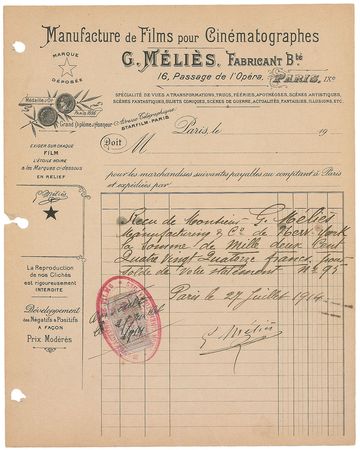 Manufacture de Films pour Cinématographes
MARQUE
DÉPOSÉE
G. MÉLIÈS, FABRICANT Bté
16, Passage de l'Opéra, PARIS, IXe
SPÉCIALITÉ DE VUES A TRANSFORMATIONS, TRUCS, FÉERIES, APOTHÉOSES, SCÈNES ARTISTIQUES,
SCÈNES FANTASTIQUES, SUJETS COMIQUES, SCÈNES DE GUERRE, ACTUALITÉS, FANTAISIES, ILLUSIONS, ETC.
Médaille d'Or
PARIS
Grand Diplôme d'Honneur
Adresse Télégraphique
STARFILM-PARIS
Paris, le 19
Doit M
EXIGER SUR CHAQUE
FILM
L'ÉTOILE NOIRE
& les Marques ci-dessous
EN RELIEF
G. Méliès
pour les marchandises suivantes payables au comptant à Paris
et expédiées par
Reçu de Monsieur G. Méliès
Manufacturing & Co de New York
la somme de Mille deux Cent
Quatre Vingt Quatorze francs, pour
solde de votre statement No 95
Paris le 27 Juillet 1914
G. Méliès
La Reproduction
de nos Clichés
est rigoureusement
INTERDITE
Développement
des Négatifs & Positifs
A FAÇON
Prix Modérés